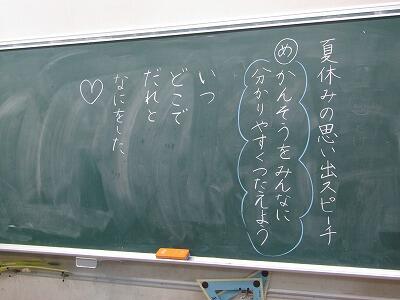 夏休みの思い出スピーチ
めかんそうをみんなに
分かりやすくつたえよう
いつ
どこで
だれと
なにをした
♡